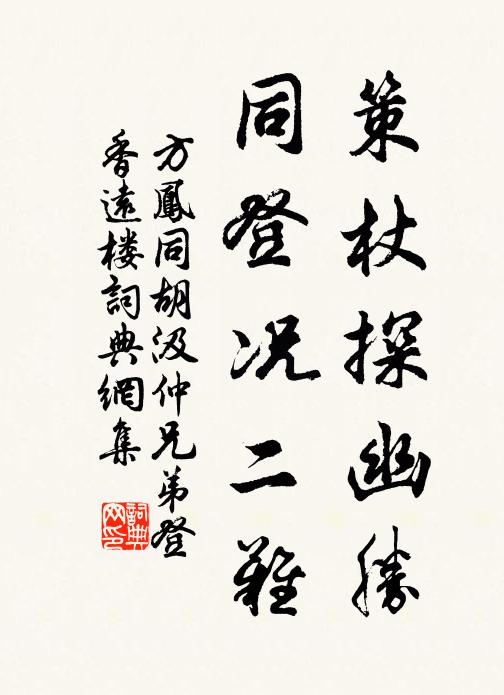 策杖探幽勝
同登况二難
方鳳同胡汲仲兄弟登
香遠楼詞典網集
詞典
网印